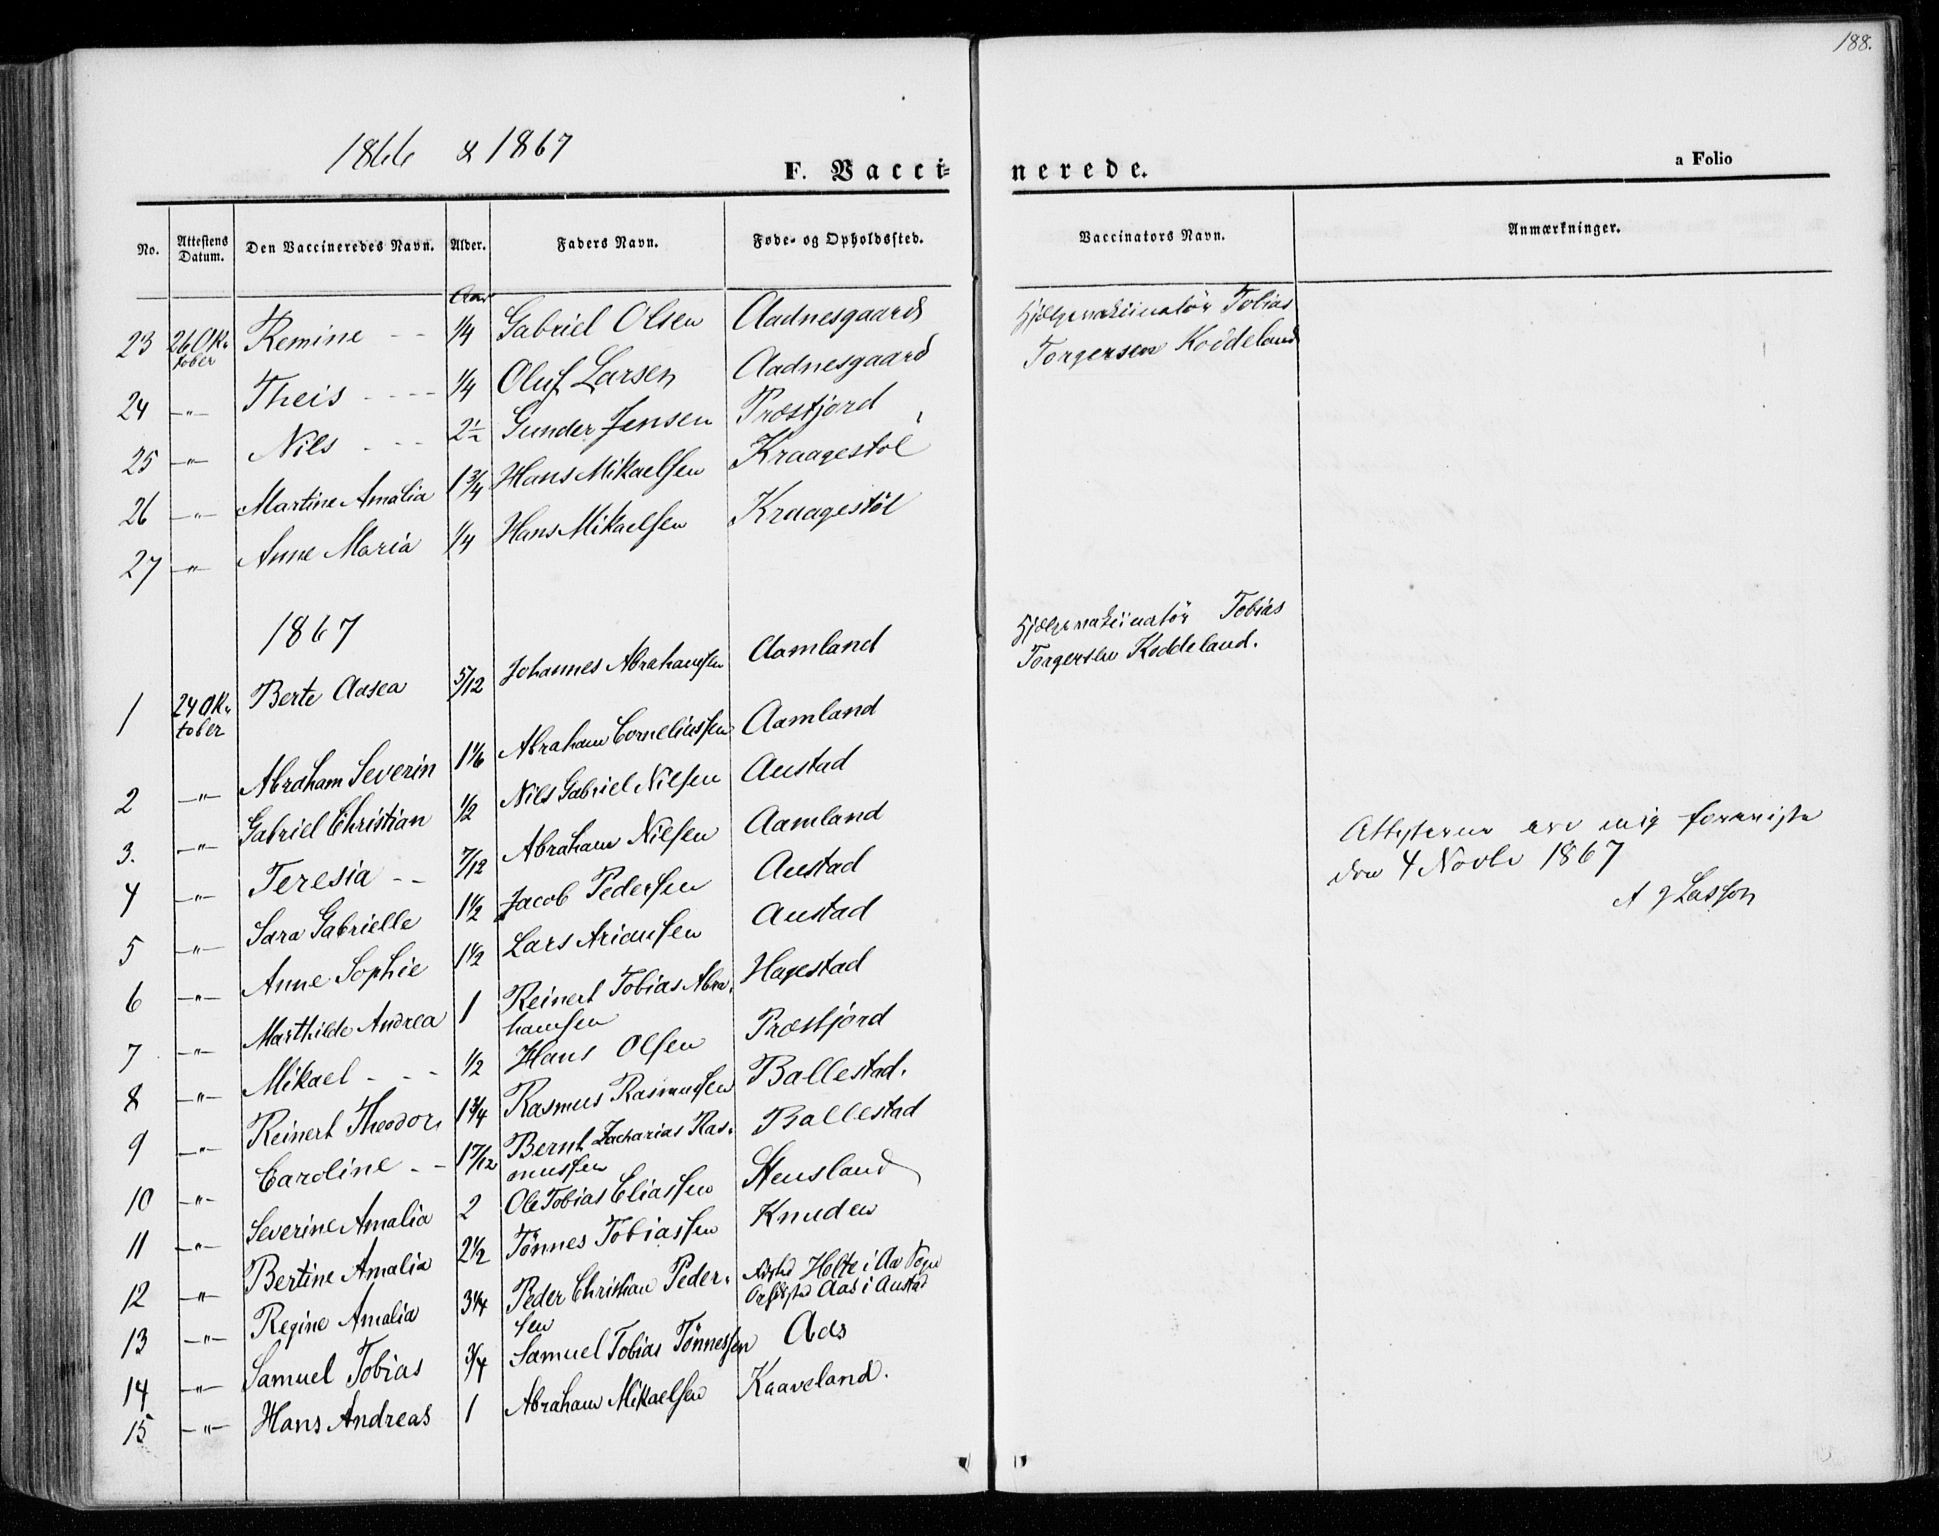 188.
1866 & 1867
F. Vaccinerede.
a Folio
No. Attestens Datum. Den Vaccineredes Navn. Alder. Faders Navn. Føde- og Opholdssted. Vaccinators Navn. Anmærkninger.
Aar
23 26 Ok- tober Remine - - 1/4 Gabriel Olsen Aadnesgaard Hjælpevakcinatör Tobias
Torgersen Koddeland
24 -"- Theis - - - - 1/4 Oluf Larsen Aadnesgaard
25 -"- Nils - - - 2½ Gunder Jensen Præstjord
26 -"- Martine Amalia 1 3/4 Hans Mikaelsen Kraagestöl
27 -"- Anne Maria 1/4 Hans Mikaelsen Kraagestöl
1867
1 24 Ok- tober Berte Aasea 5/12 Johannes Abrahamsen Aamland Hjælpevakcinatör Tobias
Torgersen Koddeland.
2 -"- Abraham Severin 1 1/6 Abraham Corneliussen Aamland
3. -"- Gabriel Christian 1/2 Nils Gabriel Nilsen Austad
4 -"- Teresia - - 7/12 Abraham Nilsen Aamland
5 -"- Sara Gabrielle 1 1/2 Jacob Pedersen Austad
6 -"- Anne Sophie 1 1/2 Lars Ariansen Austad
7 -"- Marthilde Andrea 1 Reinert Tobias Abra-
hamsen Hagestad
8 -"- Mikael - - - 1/2 Hans Olsen Præstjord
9 -"- Reinert Theodor 1 3/4 Rasmus Rasmussen Ballestad.
10 -"- Caroline - - 1 7/12 Bernt Zacharias Ras-
mussen Ballestad
11 -"- Severine Amalia 2 Ole Tobias Eliassen Stensland
12 -"- Bertine Amalia 2 1/2 Tönnes Tobiassen Knuden
13 -"- Regine Amalia 3 1/4 Peder Christian Peder-
sen Holte i Aa Sogn
Aas i Austad
14 -"- Samuel Tobias 3/4 Samuel Tobias Tönnessen Aas
15 -"- Hans Andreas 1 Abraham Mikaelsen Kaaveland.
Attesterne ere mig foreviste
den 4 Novbr 1867
A J Lasson